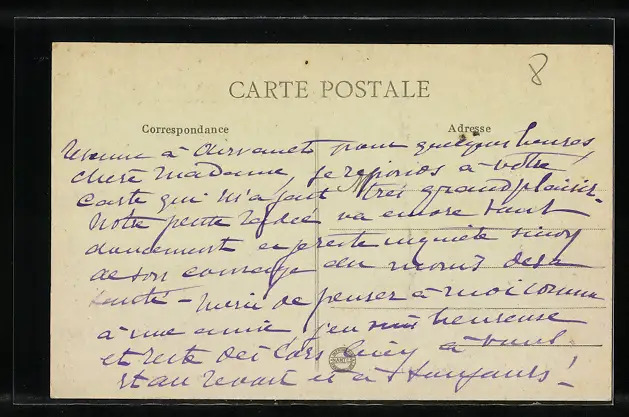 8
CARTE POSTALE
Correspondance
Adresse
Revenue à pour quelques heures,
chère Madame, je réponds à votre
carte qui m'a fait très grand plaisir.
Notre petite va encore tout
doucement et je reste inquiète sinon
de son courage du moins de sa
santé - Merci de penser à moi comme
à une amie j'en suis heureuse
et reste des à vous
et au revoir et à toujours!